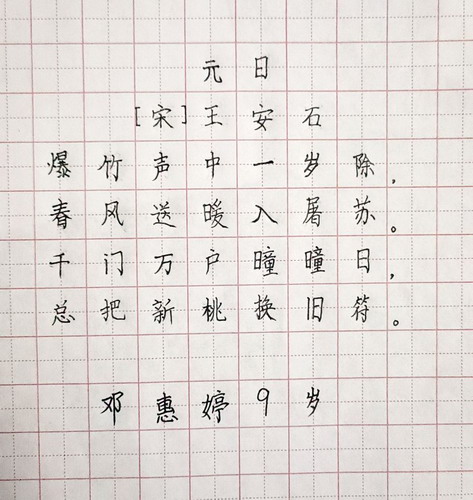 元日
[宋]王安石
爆竹声中一岁除,
春风送暖入屠苏。
千门万户曈曈日,
总把新桃换旧符。
邓惠婷9岁